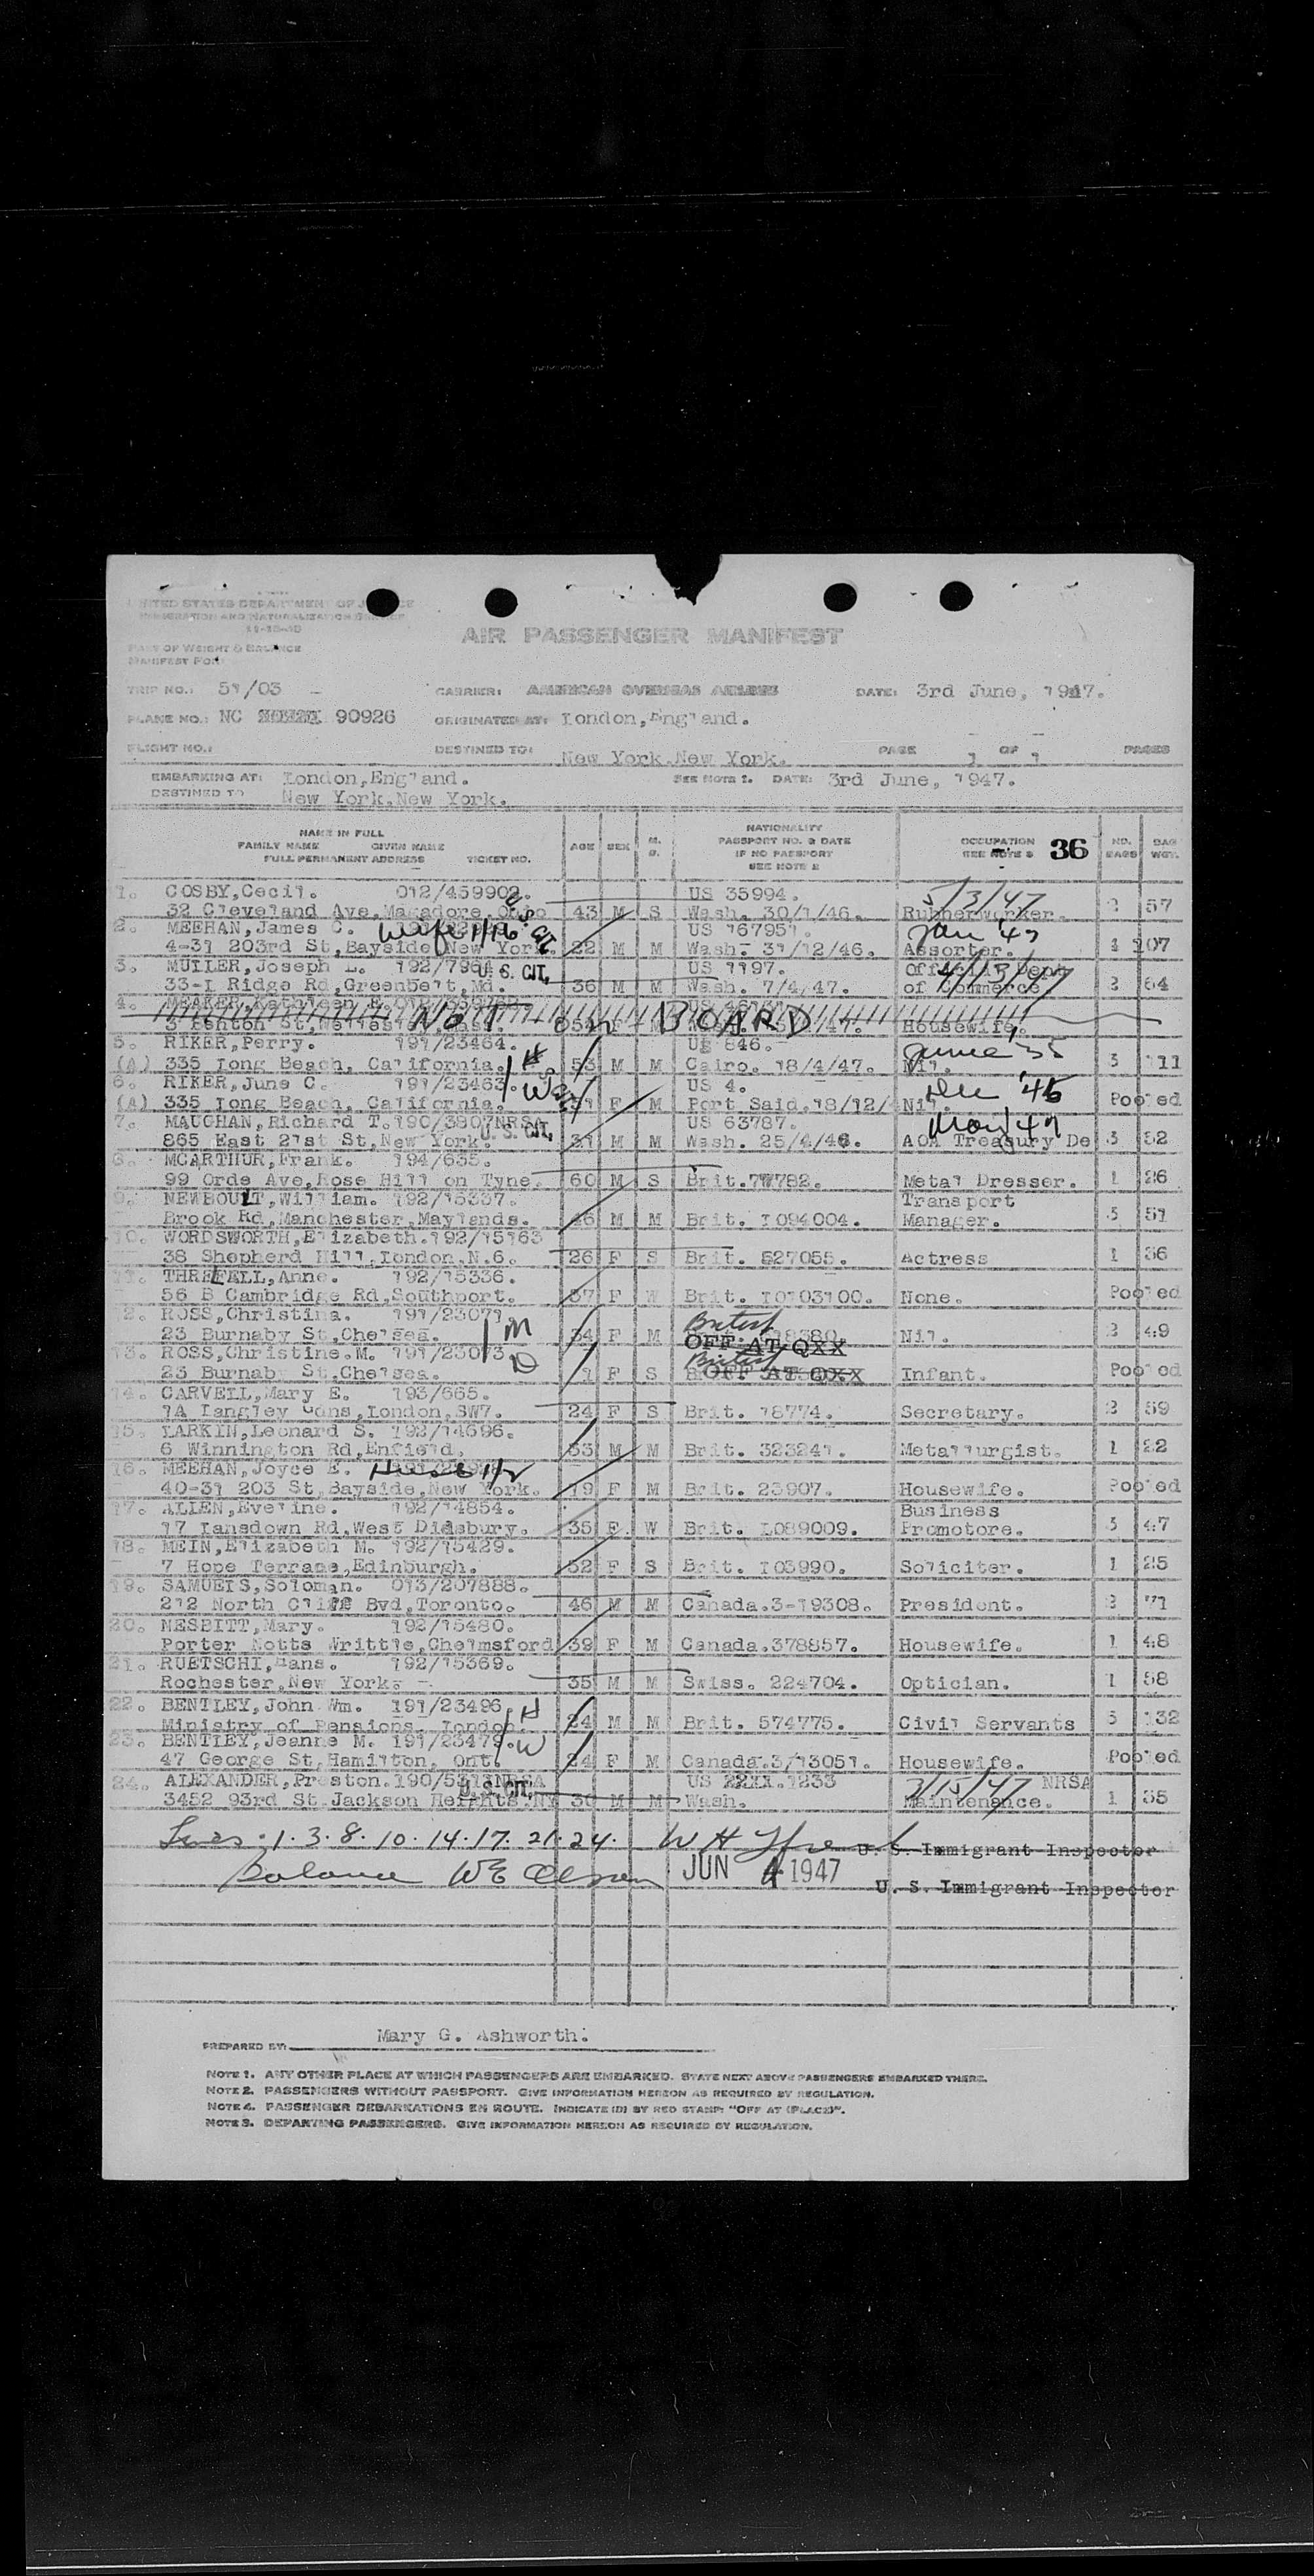 UNITED STATES DEPARTMENT OF JUSTICE
IMMIGRATION AND NATURALIZATION SERVICE
PART OF WEIGHT & BALANCE
MANIFEST FORM
AIR PASSENGER MANIFEST
TRIP NO.: 51/03 CARRIER: AMERICAN OVERSEAS AIRLINES DATE: 3rd June, 1947.
PLANE NO.: NC 90926 ORIGINATED AT: London,England.
FLIGHT NO.: DESTINED TO: New York.New York. PAGE 1 OF 1 PAGES
EMBARKING AT: London,England. SEE NOTE 1. DATE: 3rd June, 1947.
DESTINED TO New York.New York.
NAME IN FULL
FAMILY NAME GIVEN NAME
FULL PERMANENT ADDRESS TICKET NO.
AGE SEX M. S.
NATIONALITY
PASSPORT NO. & DATE
IF NO PASSPORT
SEE NOTE 2
OCCUPATION
SEE NOTE 3 36
NO. BAGS BAG WGT.
1. COSBY,Cecil. 012/459902. US 35994. 3/3/47
32 Cleveland Ave,Magadore,Ohio 43 M S Wash. 30/1/46. Rubberworker. 2 57
2. MEEHAN,James C. Wife 1/16 U.S. CIT. US 167951. Jan '47
4-31 203rd St,Bayside,New York. 22 M M Wash. 31/12/46. Assorter. 4 107
3. MULLER,Joseph L. 192/7964 U.S. CIT. US 1197. Official Dept
33-I Ridge Rd,Greenbelt,Md. 36 M M Wash. 7/4/47. of Commerce 2 64
4. MEAKER,Kathleen
3 Fenton St, NOT on BOARD Housewife.
5. RIKER,Perry. 191/23464. US 846. June '35
(A) 335 Long Beach, California. H 53 M M Cairo. 18/4/47. Nil. 3 111
6. RIKER,June C. 191/23463. W US 4. Dec '46
(A) 335 Long Beach, California. F M Port Said.18/12/ Nil. Pooled
7. MAUGHAN,Richard T.190/3807NRSA U.S. CIT. US 63787. Mar 47
865 East 21st St,New York. 31 M M Wash. 25/4/46. AOA Treasury De 3 52
8. MCARTHUR,Frank. 194/635.
99 Orde Ave,Rose Hill on Tyne. 60 M S Brit.77782. Metal Dresser. 1 26
9. NEWBOULT,William. 192/15337. Transport
Brook Rd,Manchester,Maylands. 46 M M Brit. L094004. Manager. 3 51
10. WORDSWORTH,Elizabeth.192/15163
38 Shepherd Hill,London,N.6. 26 F S Brit. 627055. Actress 1 36
11. THRELFALL,Anne. 192/15336.
56 B Cambridge Rd,Southport. 37 F W Brit. L0103100. None. Pooled
12. ROSS,Christina. 191/23071 British
23 Burnaby St,Chelsea. M 34 F M OFF AT QXX Nil. 2 49
13. ROSS,Christine.M. 191/23073 British
23 Burnab St,Chelsea. D 1 F S OFF AT QXX Infant. Pooled
14. CARVELL,Mary E. 193/665.
1A Langley Gdns,London,SW7. 24 F S Brit. 18774. Secretary. 2 59
15. LARKIN,Leonard S. 192/14696.
6 Winnington Rd,Enfield. 53 M M Brit. 323241. Metallurgist. 1 22
16. MEEHAN,Joyce E. Husb 1/2
40-31 203 St,Bayside,New York. 19 F M Brit. 23907. Housewife. Pooled
17. ALLEN,Eveline. 192/14854. Business
17 Lansdown Rd,West Didsbury. 35 F W Brit. L089009. Promotore. 3 47
18. MEIN,Elizabeth M. 192/15429.
7 Hope Terrase,Edinburgh. 52 F S Brit. L03990. Soliciter. 1 25
19. SAMUELS,Soloman. 013/207888.
212 North Cliff Bvd,Toronto. 46 M M Canada.3-19308. President. 2 71
20. NESBITT,Mary. 192/15480.
Porter Notts Writtle,Chelmsford 39 F M Canada.378857. Housewife. 1 48
21. RUETSCHI,Hans. 192/15369.
Rochester,New York. 35 M M Swiss. 224704. Optician. 1 58
22. BENTLEY,John Wm. 191/23496 H
Ministry of Pensions, London. 24 M M Brit. 574775. Civil Servants 5 132
23. BENTLEY,Jeanne M. 191/23479. W
47 George St,Hamilton, Ont. 24 F M Canada.3/13051. Housewife. Pooled
24. ALEXANDER,Preston.190/ NRSA U.S. CIT. US 1233 3/15/47 NRSA
3452 93rd St.Jackson Heights,NY 30 M M Wash. Maintenance. 1 35
Lines 1. 3. 8. 10. 14. 17. 21. 24. W H U. S. Immigrant Inspector
Balance WE Olson JUN 4 1947 U. S. Immigrant Inspector
PREPARED BY: Mary G. Ashworth.
NOTE 1. ANY OTHER PLACE AT WHICH PASSENGERS ARE EMBARKED. STATE NEXT ABOVE PASSENGERS EMBARKED THERE.
NOTE 2. PASSENGERS WITHOUT PASSPORT. GIVE INFORMATION HEREON AS REQUIRED BY REGULATION.
NOTE 4. PASSENGER DEBARKATIONS EN ROUTE. INDICATE (D) BY RED STAMP: "OFF AT (PLACE)".
NOTE 3. DEPARTING PASSENGERS. GIVE INFORMATION HEREON AS REQUIRED BY REGULATION.